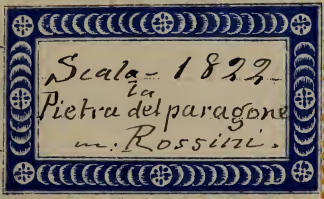 Scala - 1822
la
Pietra del paragone
m: Rossini.